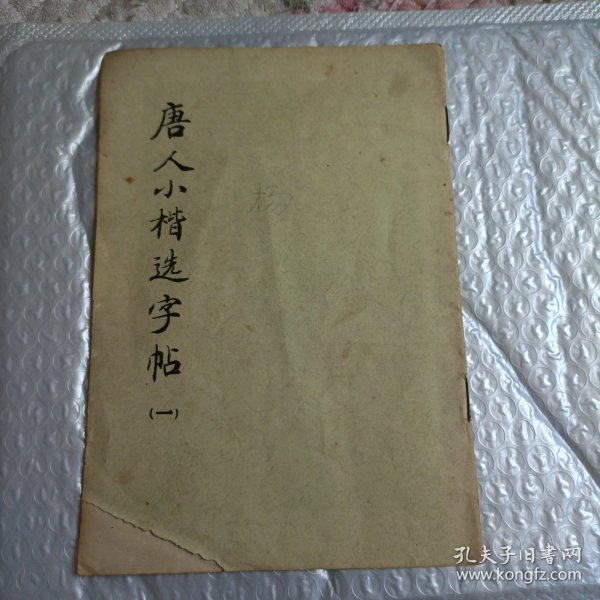 唐人小楷选字帖
(一)
杨
孔夫子旧书网
www.kongfz.com